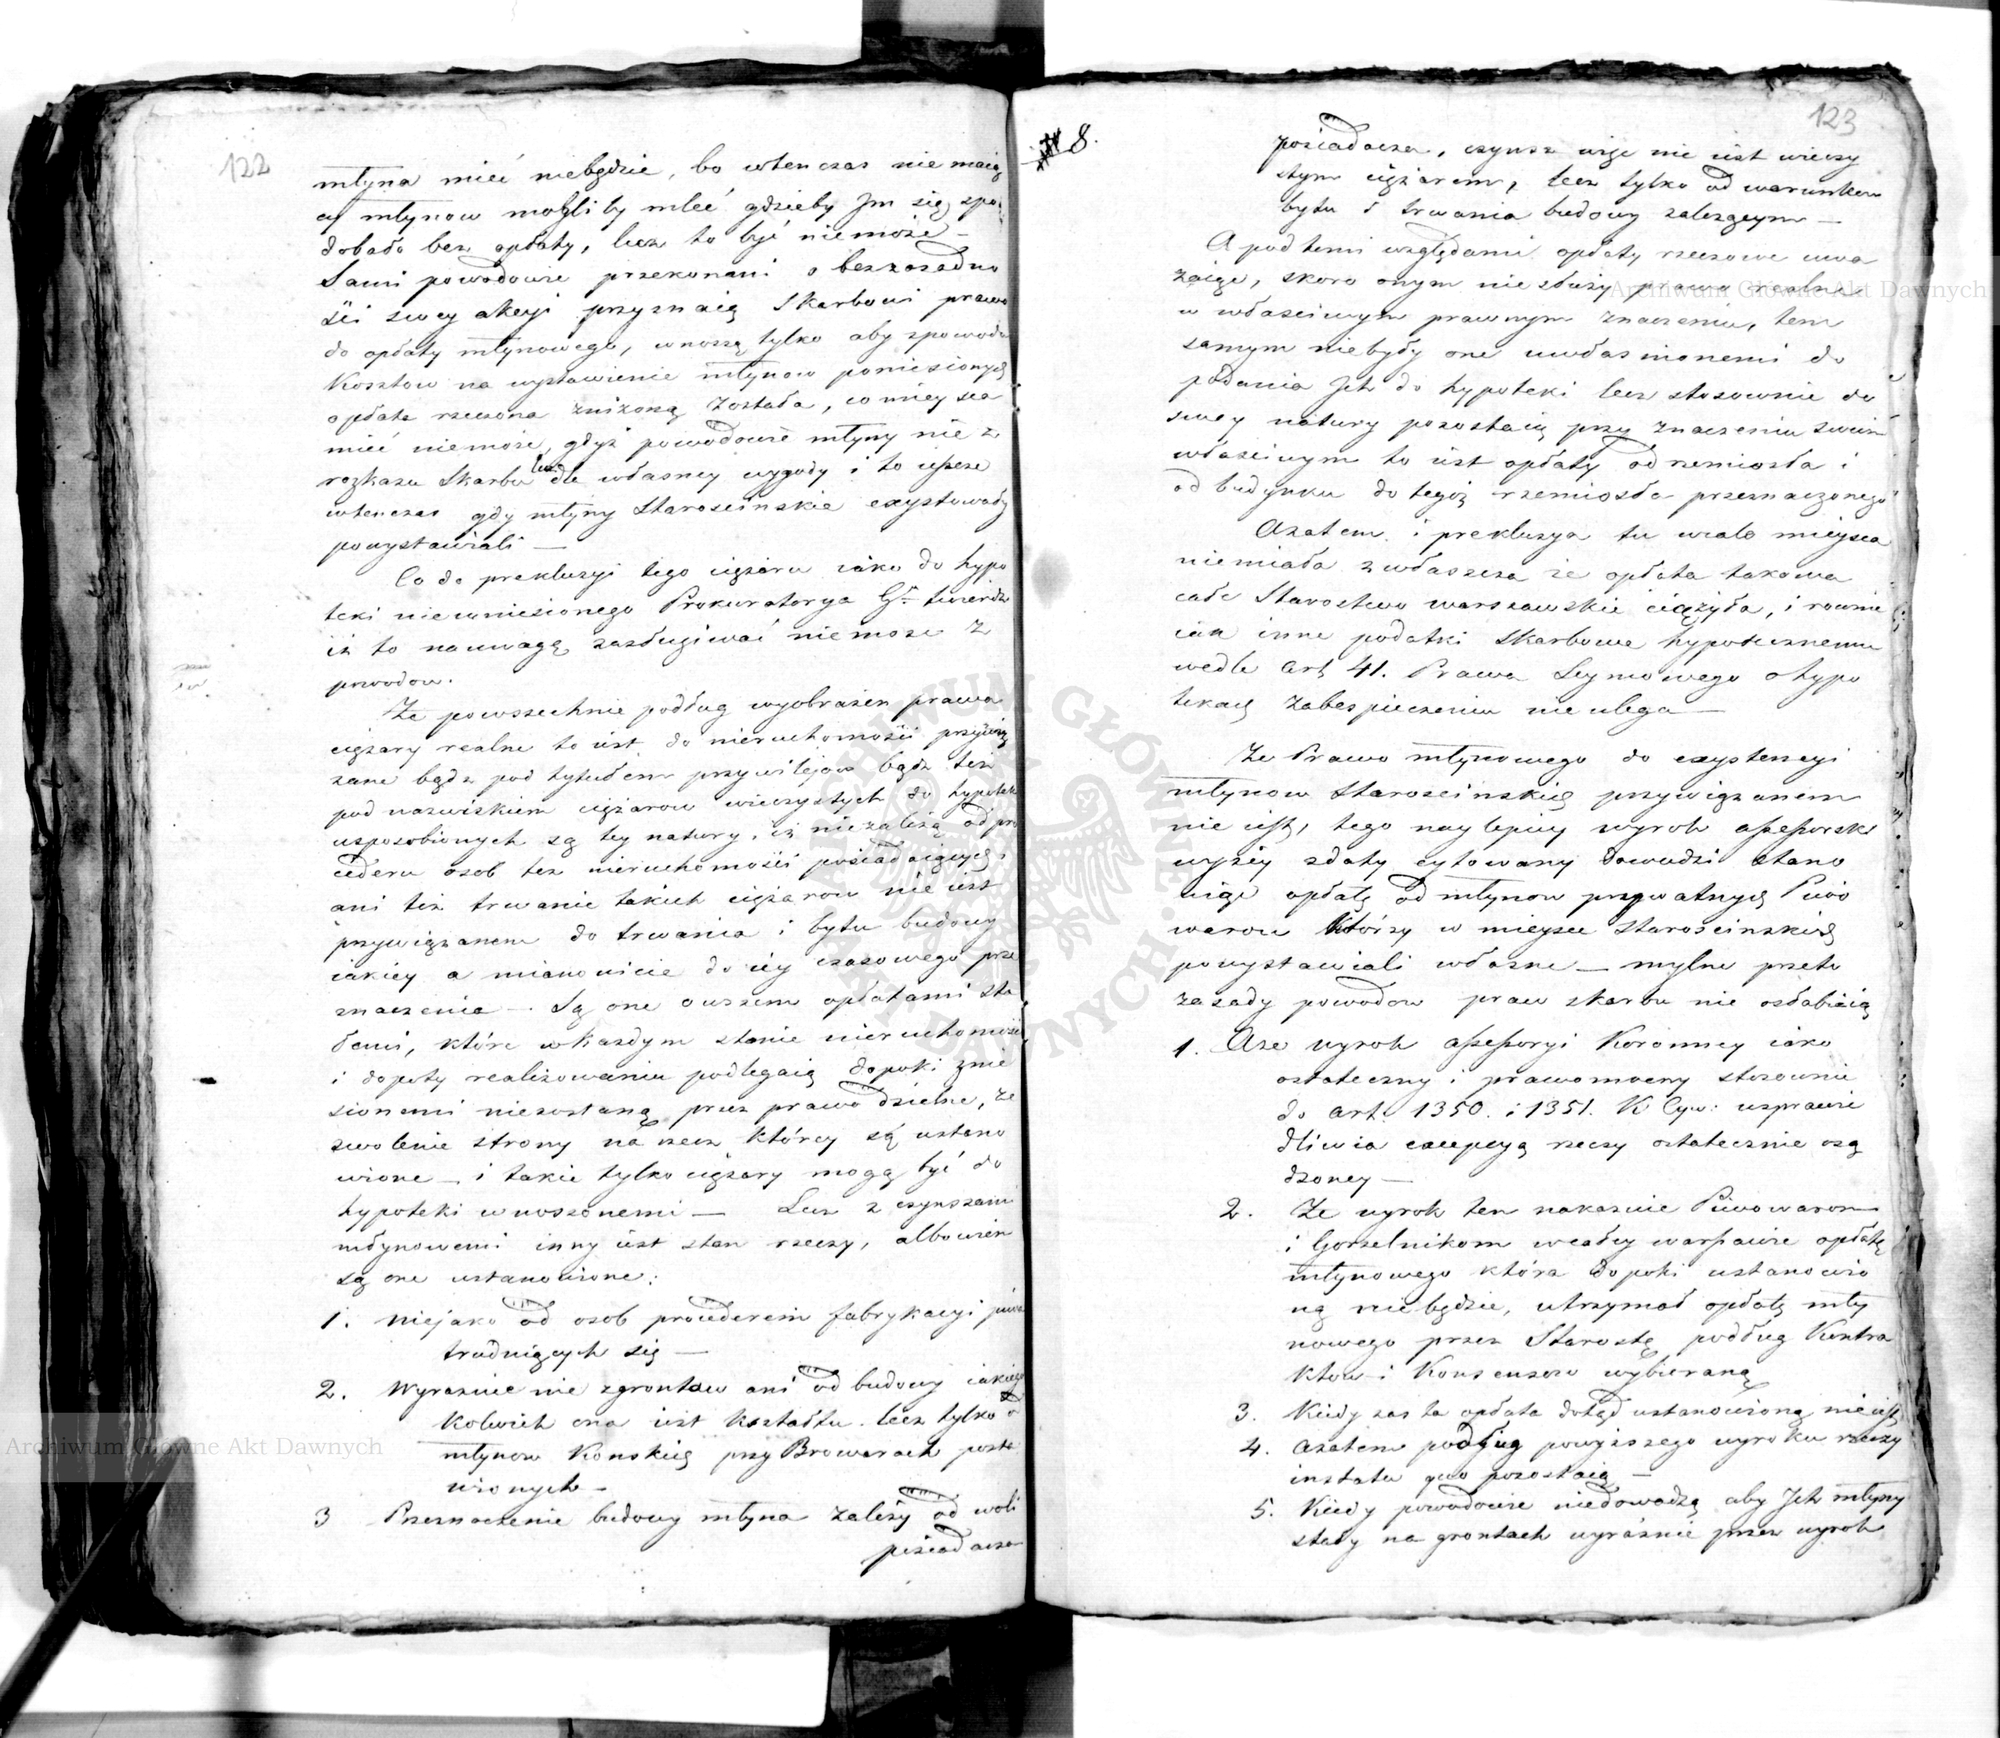 122
młyna mieć niebędzie, bo wtenczas nie maią
cy młynow mogliby mleć gdzieby Jm się spo
dobało bez opłaty, lecz to być niemoże —
Sami powodowie przekonani o bezzasadno
ści swey akcyi przyznaią Skarbowi prawo
do opłaty młynowego, wnoszą tylko aby zpowodu
Kosztow na wystawienie młynow poniesionych
opłata rzeczona zniżoną została, co mieysca
mieć niemoże, gdyż powodowie młyny nie z
rozkazu Skarbu lecz dla własney wygody i to ieszcze
wtenczas gdy młyny Starościnskie exystowały
powystawiali —
Co do prekluzyi tego ciężaru iako do hypo
teki niewniesionego Prokuratorya Glna twierdzi
iż to na uwagę zasługiwać niemoże z
powodow.
Że powszechnie podług wyobrażen prawa
ciężary realne to iest do nieruchomości przywią
zane bądz pod tytułem przywilejow bądz też
pod nazwiskiem ciężarow wieczystych do hypotek
usposobionych są tey natury, iż niezależą od pro
cederu osob tez nieruchomości posiadaiących,
ani też trwanie takich ciężarow nie iest
przywiązanem do trwania i bytu budowy
iakiey a mianowicie do iey czasowego prze
znaczenia — Są one owszem opłatami sta
łemi, które w każdym stanie nieruchomości
i dopoty realizowaniu podlegaią dopoki znie
sionemi niezostaną przez prawo dzielne, ze
zwolenie strony na rzecz którey są ustano
wione — i takie tylko ciężary mogą być do
hypoteki wnoszonemi — Lecz z czynszami
młynowemi inny iest stan rzeczy, albowiem
są one ustanowione:
1. niejako od osob procederem fabrykacyi piwa
trudniących się —
2. Wyraznie nie zgrontow ani od budowy iakiey
kolwiek ona iest kształtu lecz tylko od
młynow Konskich przy Browarach posta
wionych —
3 Przeznaczenie budowy młyna zależy od woli
posiadacza
123
8.
posiadacza, czynsz więc nie iest wieczy
stym ciężarem, lecz tylko od warunkow
bytu i trwania budowy zależącym —
A pod temi względami opłaty rzeczowe uwa
żaiąc, skoro onym nie służy prawo realne
w właściwym prawnym znaczeniu, tem
samym niebyły one uwłasnionemi do
podania Jch do hypoteki lecz stosownie do
swey natury pozostaią przy znaczeniu swem
właściwym to iest opłaty od rzemiosła i
od budynku do tegoż rzemiosła przeznaczonego
Azatem i prekluzya tu wcale mieysca
niemiała zwłaszcza że opłata takowa
całe Starostwo warszawskie ciążyła, i rownie
iak inne podatki Skarbowe hypotecznemu
wedle art 41. Prawa Seymowego o hypo
tekach zabespieczeniu nie ulega —
Że Prawo młynowego do exystencyi
młynow Starościnskich przywiązanem
nie iest, tego naylepiey wyrok assessorski
wyżey zdaty cytowany dowodzi stano
wiąc opłatę od młynow prywatnych Piwo
warow którzy w mieysce Starościnskich
powystawiali własne — mylne przeto
zasady powodow praw skarbu nie osłabiaią
1. Aże wyrok assessoryi Koronney iako
ostateczny i prawomocny stosownie
do art. 1350. i 1351. K Cyw: usprawie
dliwia excepcyą rzeczy ostatecznie osą
dzoney —
2. Że wyrok ten nakazuie Piwowarom
i Gorzelnikom wcałey warszawie opłatę
młynowego która dopoki ustanowio
ną nie będzie, utrzymał opłatę mły
nowego przez Starostę podług Kontra
ktow i Konsensow wybieraną
3. Kiedy zas ta opłata dotąd ustanowioną nie iest
4. azatem podług powyższego wyroku rzeczy
in statu quo pozostaią —
5. Kiedy powodowie niedowodzą aby Jch młyny
stały na grontach wyraśnie przez wyrok